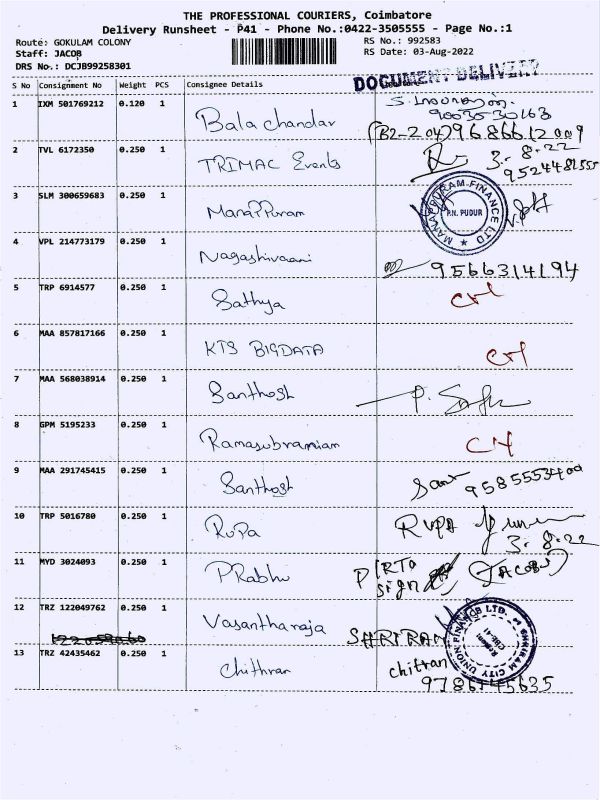 THE PROFESSIONAL COURIERS, Coimbatore
Delivery Runsheet - P41 - Phone No.:0422-3505555 - Page No.:1
Route: GOKULAM COLONY
RS No.: 992583
Staff: JACOB
RS Date: 03-Aug-2022
DRS No.: DCJB99258301
DOCUMENT DELIVERY
S No Consignment No Weight PCS Consignee Details
1 IXM 501769212 0.120 1 Bala chandar
9003530163
(B2-204) 9686612009
2 TVL 6172350 0.250 1 TRIMAC Events 3.8.22
9524481555
3 SLM 300659683 0.250 1 Manappuram
MANAPPURAM FINANCE LTD
P.N. PUDUR
4 VPL 214773179 0.250 1 Nagashivaani 9566314194
5 TRP 6914577 0.250 1 Sathya
6 MAA 857817166 0.250 1 KTS BIGDATA
7 MAA 568038914 0.250 1 Santhosh
8 GPM 5195233 0.250 1 Ramasubramiam
9 MAA 291745415 0.250 1 Santhosh
10 TRP 5016780 0.250 1 Rupa RUPA
3.8.22
11 MYD 3024093 0.250 1 Prabhu
sign (JACOB)
12 TRZ 122049762 0.250 1 Vasantharaja SHRIRAM
SHRIRAM CITY UNION FINANCE LTD.
13 TRZ 42435462 0.250 1 Chithran chitran
9786745635